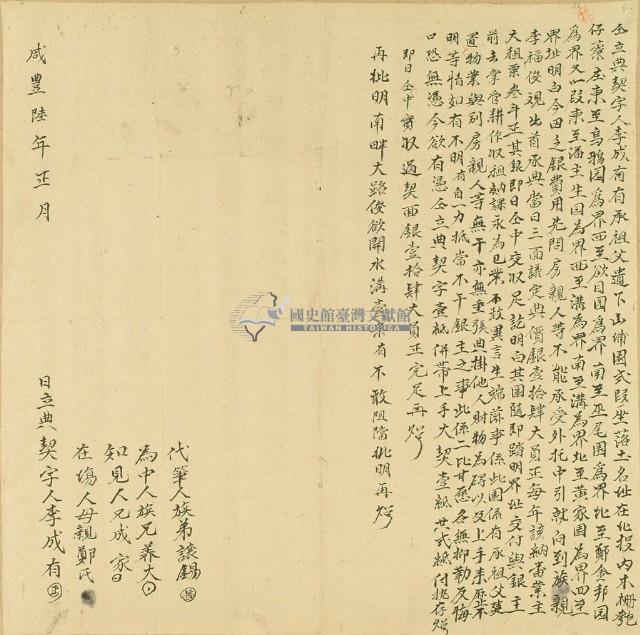 仝立典契字人李成有有承祖父遺下山埔園弍段坐落土名址在化投內木柵
仔藔庄東至烏鴉園為界西至欲目園為界南至巫尾園為界北至鄭金邦園
為界又一段東至潘主生園為界西至溝為界南至溝為界北至黃家園為界四至
界址明白今因乏銀費用先問房親人等不能承受外托中引就向到族親
李福俊觀出首承典當日三面議定典價銀壹拾肆大員正每年該納番業主
大租粟叁年正其銀即日仝中交收足訖明白其園隨即踏明界址交付與銀主
前去掌管耕作收租納課永為己業不敢異言生端滋事係此園係有承祖父建
置物業與別房親人等無干亦無重張典掛他人財物為碍以及上手來歷不
明等情如有不明有自一力抵當不干銀主之事此係二比甘愿各無抑勒反悔
口恐無憑今欲有憑仝立典契字壹紙併帶上手大契壹紙共弍紙付执存炤
即日仝中實收過契面銀壹拾肆大員正完足再炤
再批明南畔大路俊欲開水溝有不敢阻擋批明再炤
國史館臺灣文獻館
TAIWAN HISTORICA
代筆人族弟讓錫
為中人族兄養大
知見人兄成家
在場人母親鄭氏
咸豐陸年正月 日立典契字人李成有